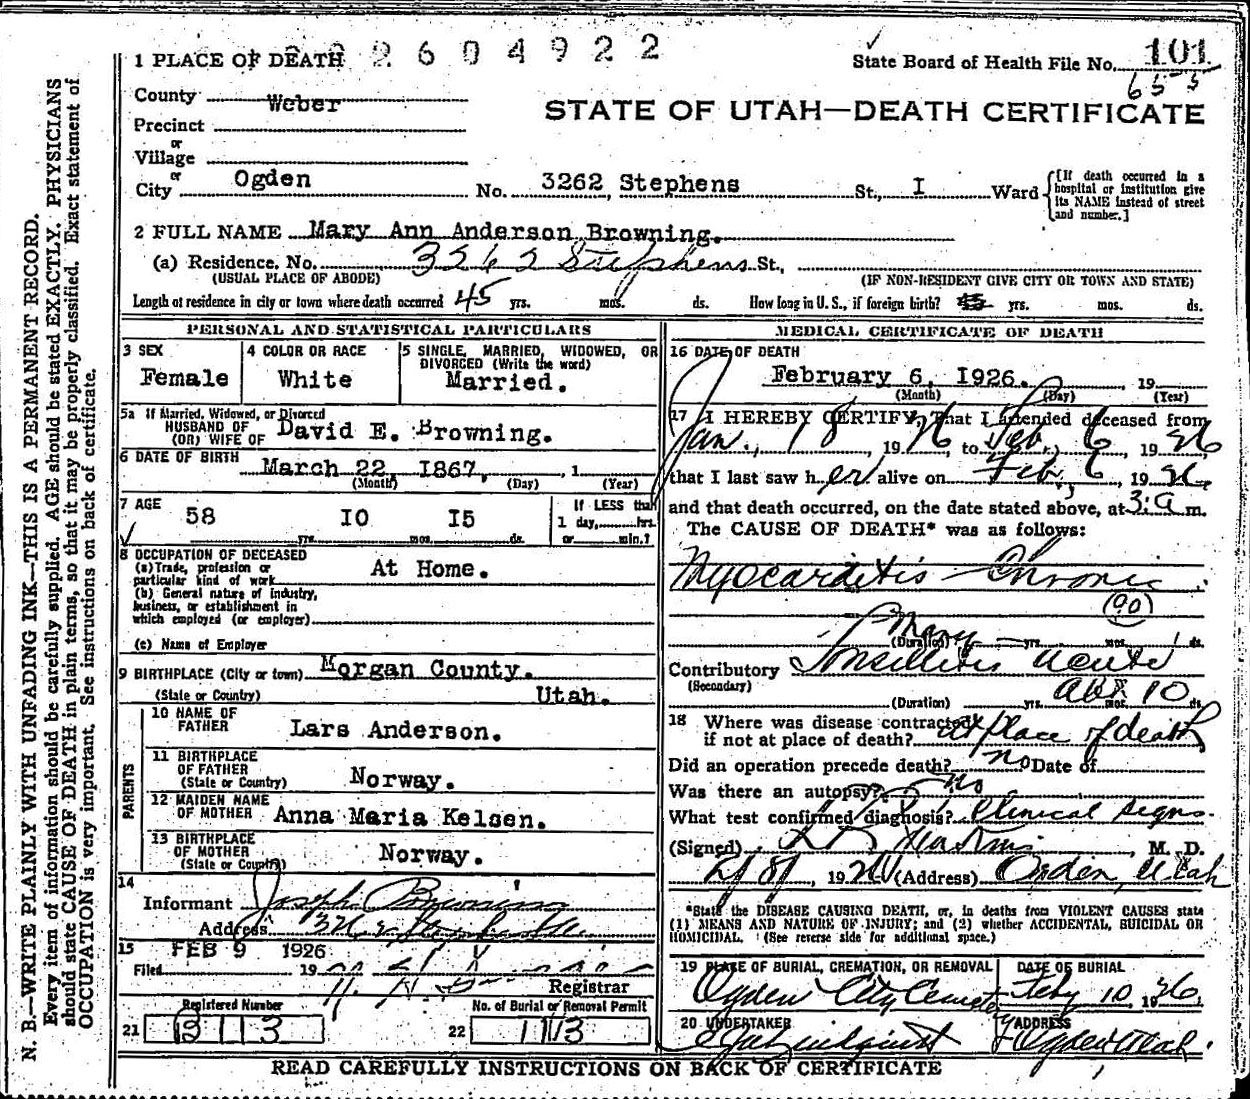 2604922
1 PLACE OF DEATH
State Board of Health File No. 101
655
County Weber
STATE OF UTAH—DEATH CERTIFICATE
Precinct
or
Village
or
City Ogden No. 3262 Stephens St., I Ward
[If death occurred in a hospital or institution give its NAME instead of street and number.]
2 FULL NAME Mary Ann Anderson Browning.
(a) Residence. No. 3262 Stephens St.,
(USUAL PLACE OF ABODE) (IF NON-RESIDENT GIVE CITY OR TOWN AND STATE)
Length of residence in city or town where death occurred 45 yrs. mos. ds. How long in U. S., if foreign birth? yrs. mos. ds.
PERSONAL AND STATISTICAL PARTICULARS
3 SEX
Female
4 COLOR OR RACE
White
5 SINGLE, MARRIED, WIDOWED, OR
DIVORCED (Write the word)
Married.
5a If Married, Widowed, or Divorced
HUSBAND OF
(OR) WIFE OF David E. Browning.
6 DATE OF BIRTH March 22, I867, 1
(Month) (Day) (Year)
7 AGE
58 yrs. I0 mos. I5 ds.
If LESS than
1 day, hrs.
or min.?
8 OCCUPATION OF DECEASED
(a) Trade, profession or
particular kind of work At Home.
(b) General nature of industry,
business, or establishment in
which employed (or employer)
(c) Name of Employer
9 BIRTHPLACE (City or town) Morgan County.
(State or Country) Utah.
PARENTS
10 NAME OF
FATHER Lars Anderson.
11 BIRTHPLACE
OF FATHER
(State or Country) Norway.
12 MAIDEN NAME
OF MOTHER Anna Maria Kelsen.
13 BIRTHPLACE
OF MOTHER
(State or Country) Norway.
14
Informant Joseph Browning
Address
15 FEB 9 1926
Filed 19
Registrar
Registered Number
21 B 113
No. of Burial or Removal Permit
22 113
MEDICAL CERTIFICATE OF DEATH
16 DATE OF DEATH
February 6, I926. , 19
(Month) (Day) (Year)
17 I HEREBY CERTIFY, That I attended deceased from
Jan. 18 1926 to Feb. 6 1926
that I last saw her alive on Feb. 6, 1926,
and that death occurred, on the date stated above, at 3 a m.
The CAUSE OF DEATH* was as follows:
Myocarditis - Chronic
(90)
(Duration) many yrs. mos. ds.
Contributory Tonsillitis acute
(Secondary)
(Duration) yrs. mos. abt 10 ds.
18 Where was disease contracted
if not at place of death? at place of death
Did an operation precede death? no Date of
Was there an autopsy? no
What test confirmed diagnosis? Clinical signs.
(Signed) , M. D.
, 1926 (Address) Ogden, Utah
*State the DISEASE CAUSING DEATH, or, in deaths from VIOLENT CAUSES state
(1) MEANS AND NATURE OF INJURY; and (2) whether ACCIDENTAL, SUICIDAL OR
HOMICIDAL. (See reverse side for additional space.)
19 PLACE OF BURIAL, CREMATION, OR REMOVAL
Ogden City Cemetery
DATE OF BURIAL
Feby 10, 1926
20 UNDERTAKER
Lindquist
ADDRESS
Ogden Utah.
READ CAREFULLY INSTRUCTIONS ON BACK OF CERTIFICATE
N. B.—WRITE PLAINLY WITH UNFADING INK—THIS IS A PERMANENT RECORD.
Every item of information should be carefully supplied. AGE should be stated EXACTLY. PHYSICIANS
should state CAUSE OF DEATH in plain terms, so that it may be properly classified. Exact statement of
OCCUPATION is very important. See instructions on back of certificate.